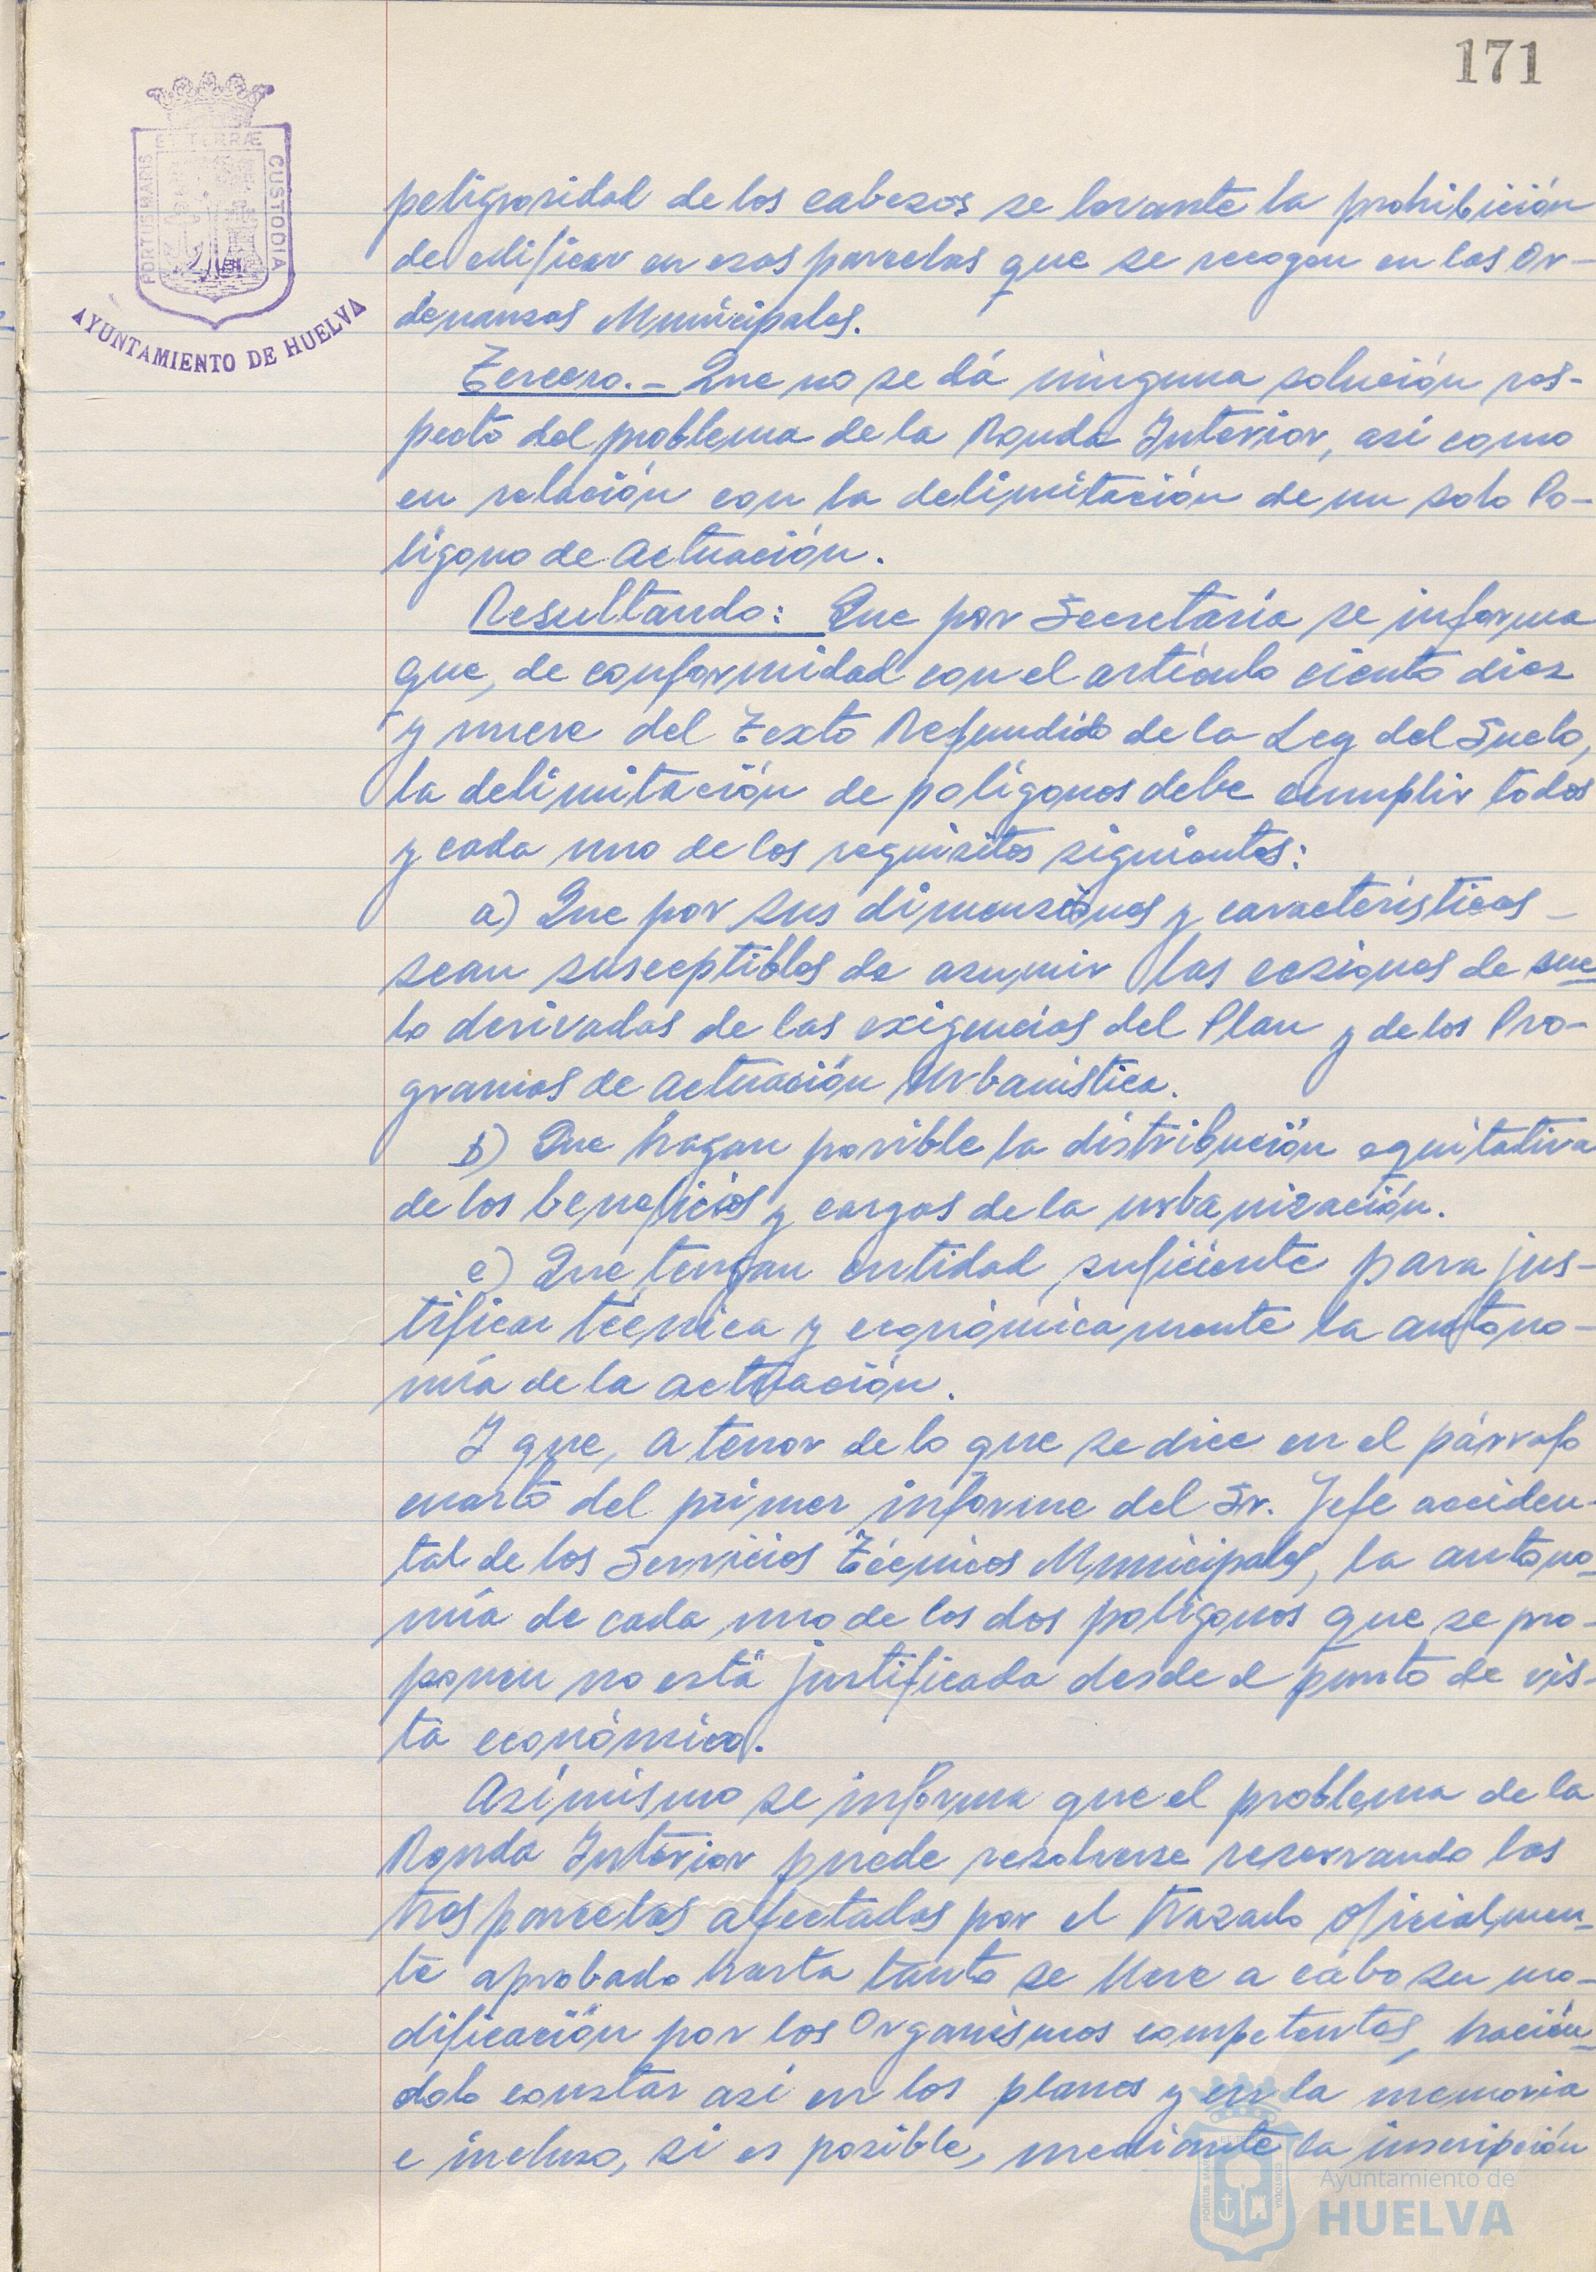 171
PORTUS MARIS
ET TERRÆ
CUSTODIA
AYUNTAMIENTO DE HUELVA
peligrosidad de los cabezos se levante la prohibición
de edificar en esas parcelas que se recogen en las Or-
denanzas Municipales.
Tercero.- Que no se dá ninguna solución res-
pecto del problema de la Ronda Interior, así como
en relación con la delimitación de un solo Po-
lígono de actuación.
Resultando: Que por Secretaría se informa
que, de conformidad con el artículo ciento diez
y nueve del Texto Refundido de la Ley del Suelo,
la delimitación de polígonos debe cumplir todos
y cada uno de los requisitos siguientes:
a) Que por sus dimensiones y características -
sean susceptibles de asumir las cesiones de sue
lo derivadas de las exigencias del Plan y de los Pro-
gramas de actuación Urbanística.
b) Que hagan posible la distribución equitativa
de los beneficios y cargas de la urbanización.
c) Que tengan entidad suficiente para jus-
tificar técnica y económicamente la autono-
mía de la actuación.
Y que, a tenor de lo que se dice en el párrafo
cuarto del primer informe del Sr. Jefe acciden-
tal de los Servicios Técnicos Municipales, la autono-
mía de cada uno de los dos polígonos que se pro-
ponen no está justificada desde el punto de vis-
ta económico.
Asímismo se informa que el problema de la
Ronda Interior puede resolverse reservando las
tres parcelas afectadas por el trazado oficialmen-
te aprobado hasta tanto se lleve a cabo su mo-
dificación por los Organismos competentes, hacién-
dolo constar así en los planos y en la memoria
e incluso, si es posible, mediante la inscripción
Ayuntamiento de
HUELVA